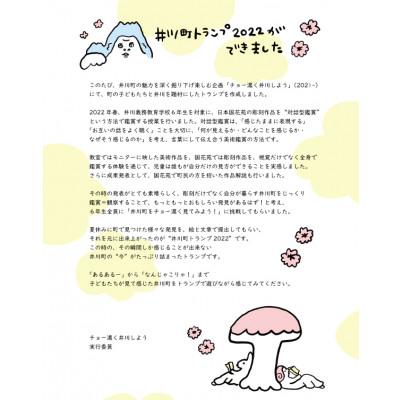 井川町トランプ2022が
できました
このたび、井川町の魅力を深く掘り下げ楽しむ企画「チョー濃く井川しよう」(2021~)
にて、町の子どもたちと井川を題材にしたトランプを作成しました。
2022年春、井川義務教育学校6年生を対象に、日本国花苑の彫刻作品を"対話型鑑賞"
という方法で鑑賞する授業を行いました。対話型鑑賞は、「感じたままに表現する」
「お互いの話をよく聴く」ことを大切に、「何が見えるか・どんなことを感じるか・
なぜそう感じるのか」を考え、言葉にして伝え合う美術鑑賞の方法です。
教室ではモニターに映した美術作品を、国花苑では彫刻作品を、視覚だけでなく全身で
鑑賞する体験を通じて、児童は誰もが自分だけの見方ができることを実感しました。
さらに成果発表として、国花苑で町民の方を招いた作品解説も行いました。
その時の発表がとても素晴らしく、彫刻だけでなく自分が暮らす井川町をじっくり
鑑賞=観察することで、もっともっとおもしろい発見があるはず!と考え、
6年生全員に「井川町をチョー濃く見てみよう!」に挑戦してもらいました。
夏休みに町で見つけた様々な発見を、絵と文章で提出してもらい、
それを元に出来上がったのが"井川町トランプ2022"です。
この時の、その瞬間しか感じることが出来ない
井川町の"今"がたっぷり詰まったトランプです。
「あるあるー」から「なんじゃこりゃ!」まで
子どもたちが見て感じた井川町をトランプで遊びながら感じてみてください。
チョー濃く井川しよう
実行委員